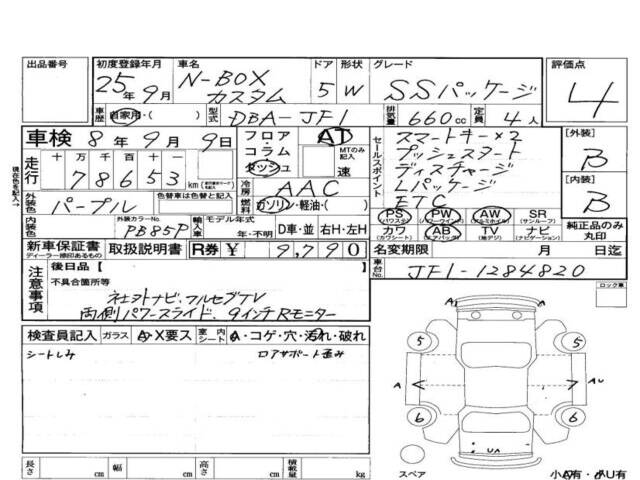 出品番号 初度登録年月 車名 ドア 形状 グレード 評価点
25年9月 N-BOX カスタム 5 W SSパッケージ 4
車歴 自家用・( ) 型式 DBA-JF1 排気量 660cc 定員 4人
車検 8年9月9日 フロア・コラム ダッシュ AT MTのみ記入 速
走行 十 万 千 百 十 一
78653 km
冷房 AAC
外装色 パープル 色替車は色替と記入 燃料 ガソリン・軽油・( )
内装色 外装カラーNo. PB85P 輸入車 モデル年式 年・不明 D車・並 右H・左H
セールスポイント
スマートキー×2
プッシュスタート
ディスチャージ
Lパッケージ
ETC
PS (パワステ) PW (パワーウインド) AW (アルミホイル) SR (サンルーフ)
カワ (カワシート) AB (エアバッグ) TV (地デジ) ナビ (ナビゲーション)
[外装] B
[内装] B
純正品のみ丸印
現在色を記入→
新車保証書 ディーラー捺印あるもの 取扱説明書 R券 ¥ 9,790 名変期限 月 日迄
車台No. JF1-1284820
注意事項 後日品【
不具合箇所等
社外ナビ・フルセグTV
両側パワースライド、9インチRモニター
ロック車
検査員記入 ガラス A・X要ス 室内 シート A・コゲ・穴・汚れ・破れ
シートしみ ロアサポート歪み
A
5 5
A AU
6 6
UA
スペア 小A有・小U有
長さ cm 幅 cm 高さ cm 積載量 kg